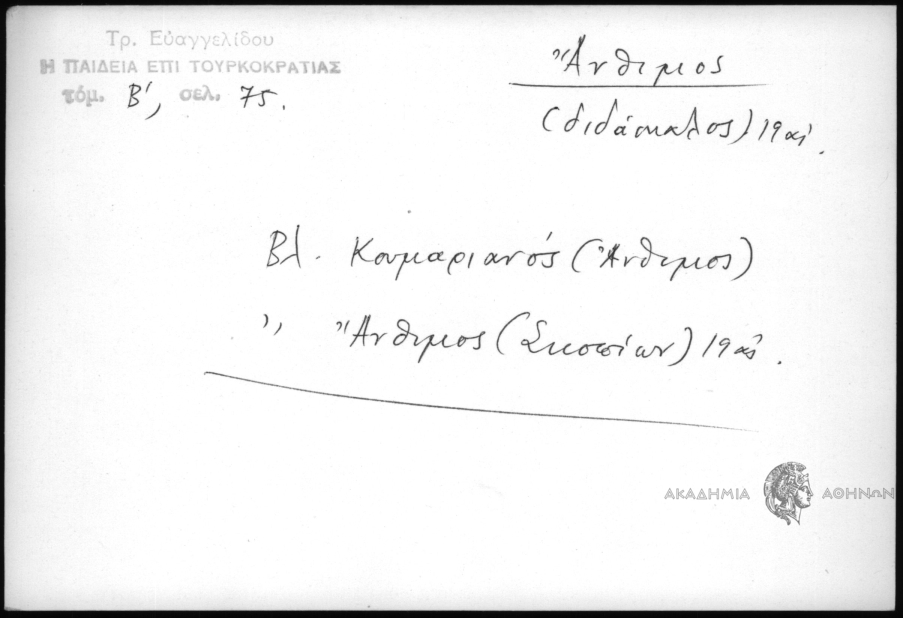 Τρ. Εὐαγγελίδου
Η ΠΑΙΔΕΙΑ ΕΠΙ ΤΟΥΡΚΟΚΡΑΤΙΑΣ
τόμ. Β', σελ. 75.
Ἄνθιμος
(διδάσκαλος) 19 αἰ.
Βλ. Κουμαριανός (Ἄνθιμος)
,, Ἄνθιμος (Σκοπίων) 19 αἰ.
ΑΚΑΔΗΜΙΑ ΑΘΗΝΩΝ